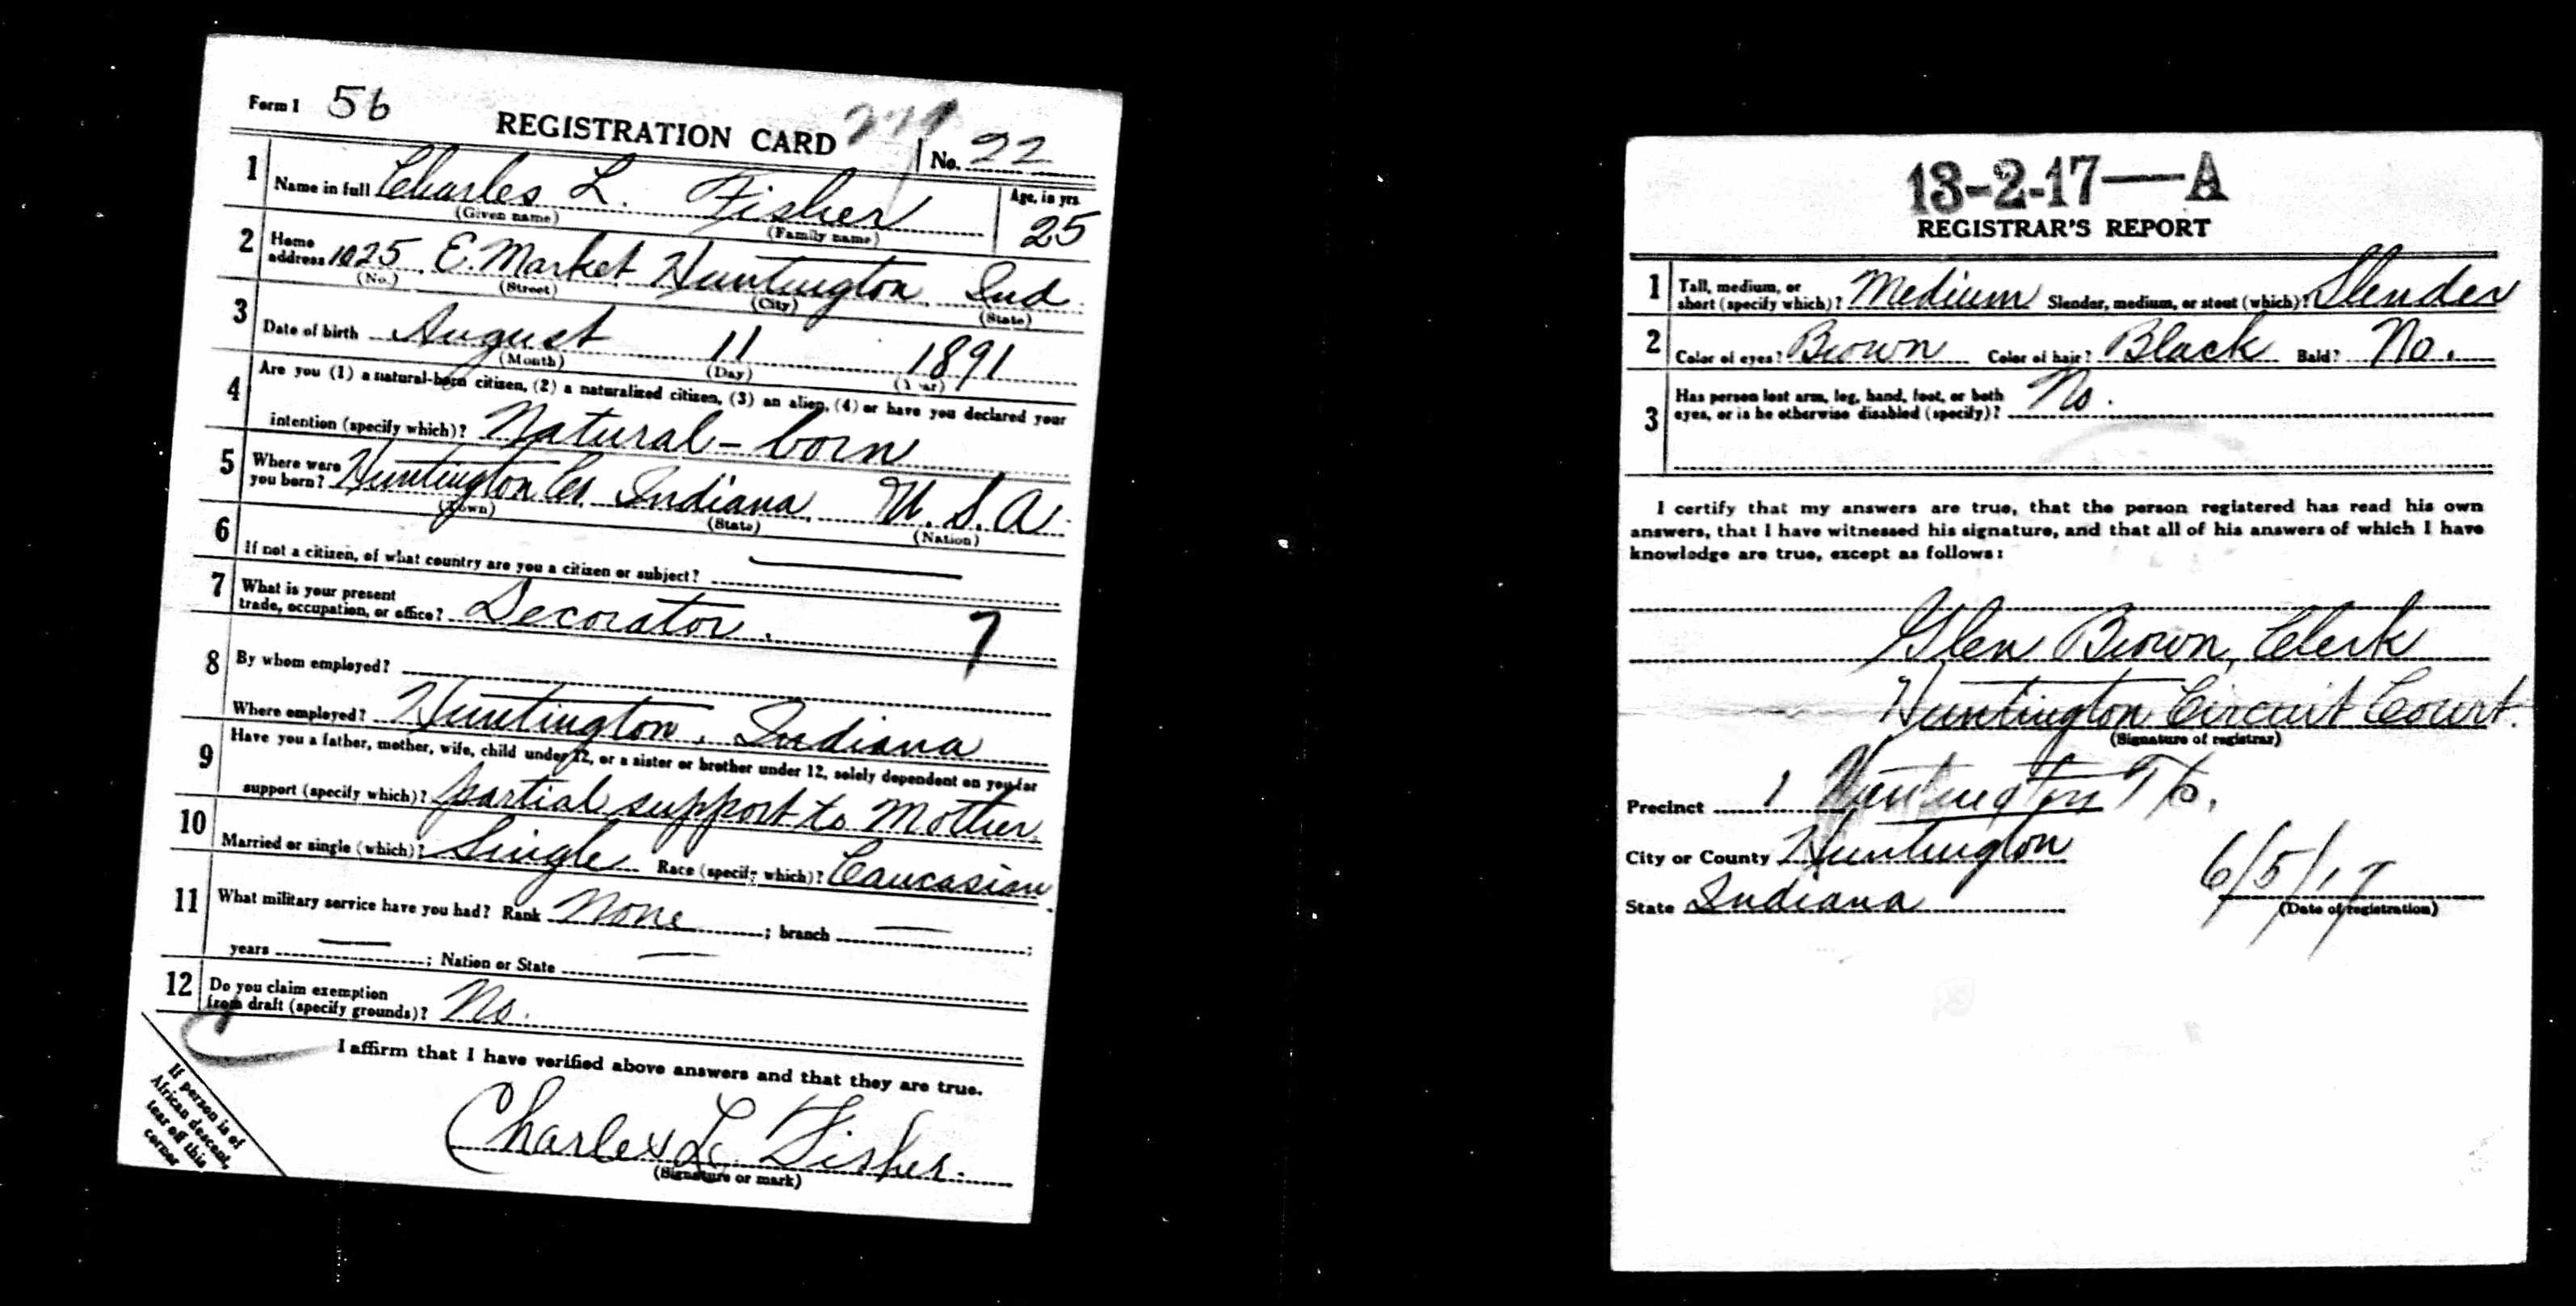 Form 1 56
REGISTRATION CARD No. 22
1 Name in full Charles L. Fisher Age, in yrs. 25
(Given name) (Family name)
2 Home address 1025 E. Market Huntington Ind
(No.) (Street) (City) (State)
3 Date of birth August 11 1891
(Month) (Day) (Year)
4 Are you (1) a natural-born citizen, (2) a naturalized citizen, (3) an alien, (4) or have you declared your
intention (specify which)? Natural-born
5 Where were you born? Huntington Co. Indiana U.S.A.
(Town) (State) (Nation)
6 If not a citizen, of what country are you a citizen or subject? —
7 What is your present trade, occupation, or office? Decorator. 7
8 By whom employed?
Where employed? Huntington, Indiana
9 Have you a father, mother, wife, child under 12, or a sister or brother under 12, solely dependent on you for
support (specify which)? partial support to Mother
10 Married or single (which)? Single Race (specify which)? Caucasian
11 What military service have you had? Rank None ; branch — ;
years — ; Nation or State —
12 Do you claim exemption
from draft (specify grounds)? No.
I affirm that I have verified above answers and that they are true.
Charles L. Fisher.
(Signature or mark)
If person is of
African descent,
tear off this
corner
13-2-17—A
REGISTRAR'S REPORT
1 Tall, medium, or
short (specify which)? Medium Slender, medium, or stout (which)? Slender
2 Color of eyes? Brown Color of hair? Black Bald? No.
3 Has person lost arm, leg, hand, foot, or both
eyes, or is he otherwise disabled (specify)? No.
I certify that my answers are true, that the person registered has read his own
answers, that I have witnessed his signature, and that all of his answers of which I have
knowledge are true, except as follows:
Glen Brown, Clerk
Huntington Circuit Court.
(Signature of registrar)
Precinct 1 Huntington Tp.
City or County Huntington
State Indiana 6/5/17
(Date of registration)